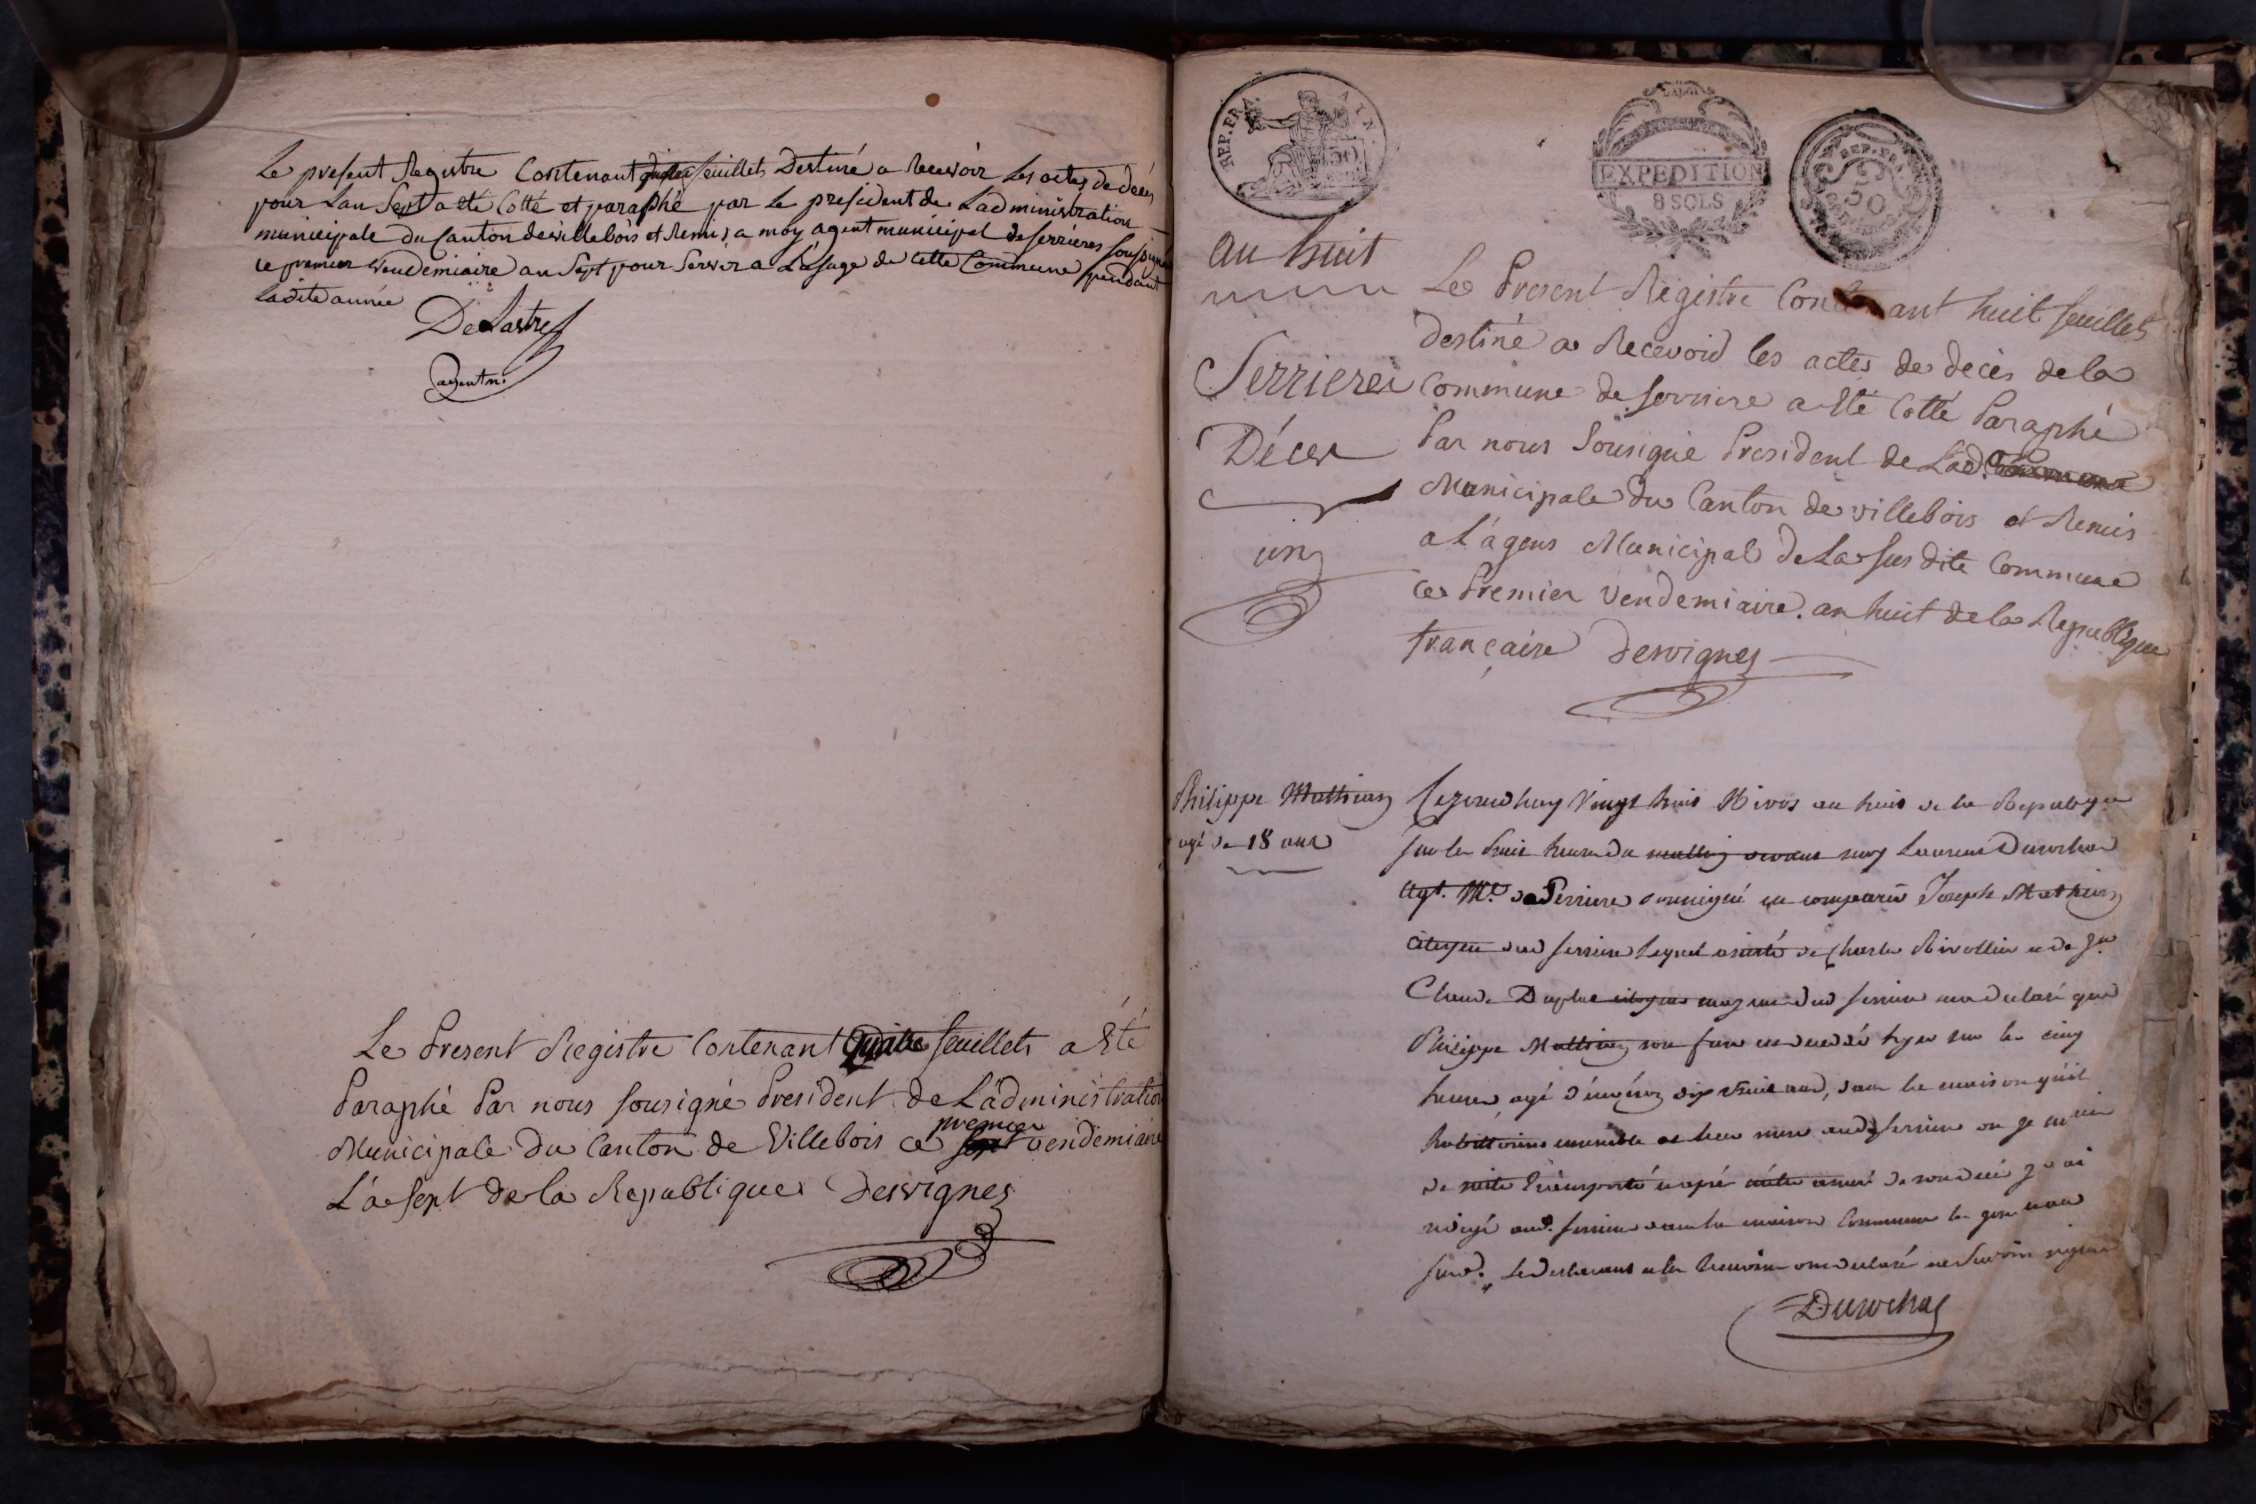 Le present Registre Contenant feuillets Destiné a Recevoir Les actes de decés
pour Lan Sept a eté Cotté et paraphé par Le president de Ladministration
municipale du Canton de villebois et Remis a moy agent municipal de serrieres soussigné
ce premier vendemiaire an Sept pour Servir a L'usage de cette Commune pendant
Ladite année
DeLastre
agent m.
Le Present Registre Contenant quatre feuillets a Eté
Paraphé Par nous sousigné President de L'administration
premier
Municipale du Canton de Villebois ce sept vendemiaire
L'a sept de la Republique Desvignes
REP. FRA. AIN
50
EXPEDITION
8 SOLS
REP. FRA.
50
an huit
Le Present Registre Contenant huit feuillets
destiné a Recevoid les actes de décès de la
Serrieres
Commune de serriere a Eté Cotté Paraphé
Décès
Par nous Sousigné President de Lad.
Municipale du Canton de villebois et Remis
un
a L'agens Municipal de La sus dite Commune
Ce Premier vendemiaire. an huit de la Republique
française Desvignes
Philippe Mathieu
agé de 18 ans
Cejourdhuy Vingt huit Nivos an huit de la Republique
sur les huit heures du matting devant moy Laurent Durochat
Agt. Ml. de Serriere soussigné est comparu Joseph Mathieu
Citoyen dud serriere lequel assisté de Charle Rivollier et de Jn
Claude Duplat citoyens dud serriere ma declaré que
Philippe Mathieu son frere est decedé hyer sur les cinq
heures, agé d'environ dix huit ans, dans la maison qu'il
habittoint ensemble et leur mere aud serriere ou je me suis
de suite transporté et apré m'etre assuré de son decé j'en ai
redigé aud. serriere dans la maison Commune les jour et an
susd. Le declarant et les temoins ont declaré ne savoir signer
Durochat